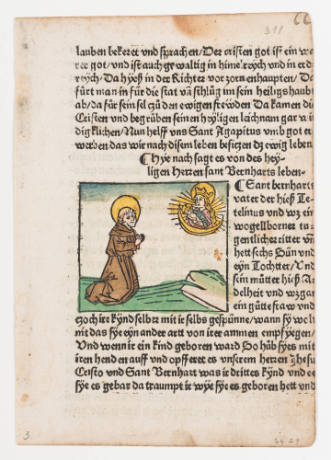 lauben bekeret und sprachen/ Der cristen got ist ein we
rer got/ und ist auch gewaltig in himelreych und in erd
reych/ Da hyeß in der Richter vor zorn enhaupten/ Da
fürt man in für die stat da schlůg im sein heiligs haubt
ab/ da für sein sel czů den ewigen frewden Da kamen die
Cristen und begrůben seinen heyligen leichnam gar
diglichen/ Nun helff uns Sant Agapitus umb got er
werben das wir nach disem leben besiczen dz ewig leben
Hye nach sagt es von des hey-
ligen Herren sant Bernharts leben
Sant bernharts
vater der hieß Te
celinus und wz ein
wogellborner tu
gentlicher ritter un
hett sechs Sün und
eyn Tochtter/ Und
sein můtter hieß A
delheit und wz gar
ein gůtte fraw und
czoch ire kynd selbs mit ir selbs gespunne/ wann sy wolt
nit das sye eyn ander artt von irer ammen empfyegen/
Und wenn ir ein kind geboren ward So hůb sye es mit
iren henden auff und opfferet es unserem herren jhesu
Cristo und Sant Bernhart was ir drittes kynd und ee
sye es gebar da traumpt ir wye sye es geboren hett und
3